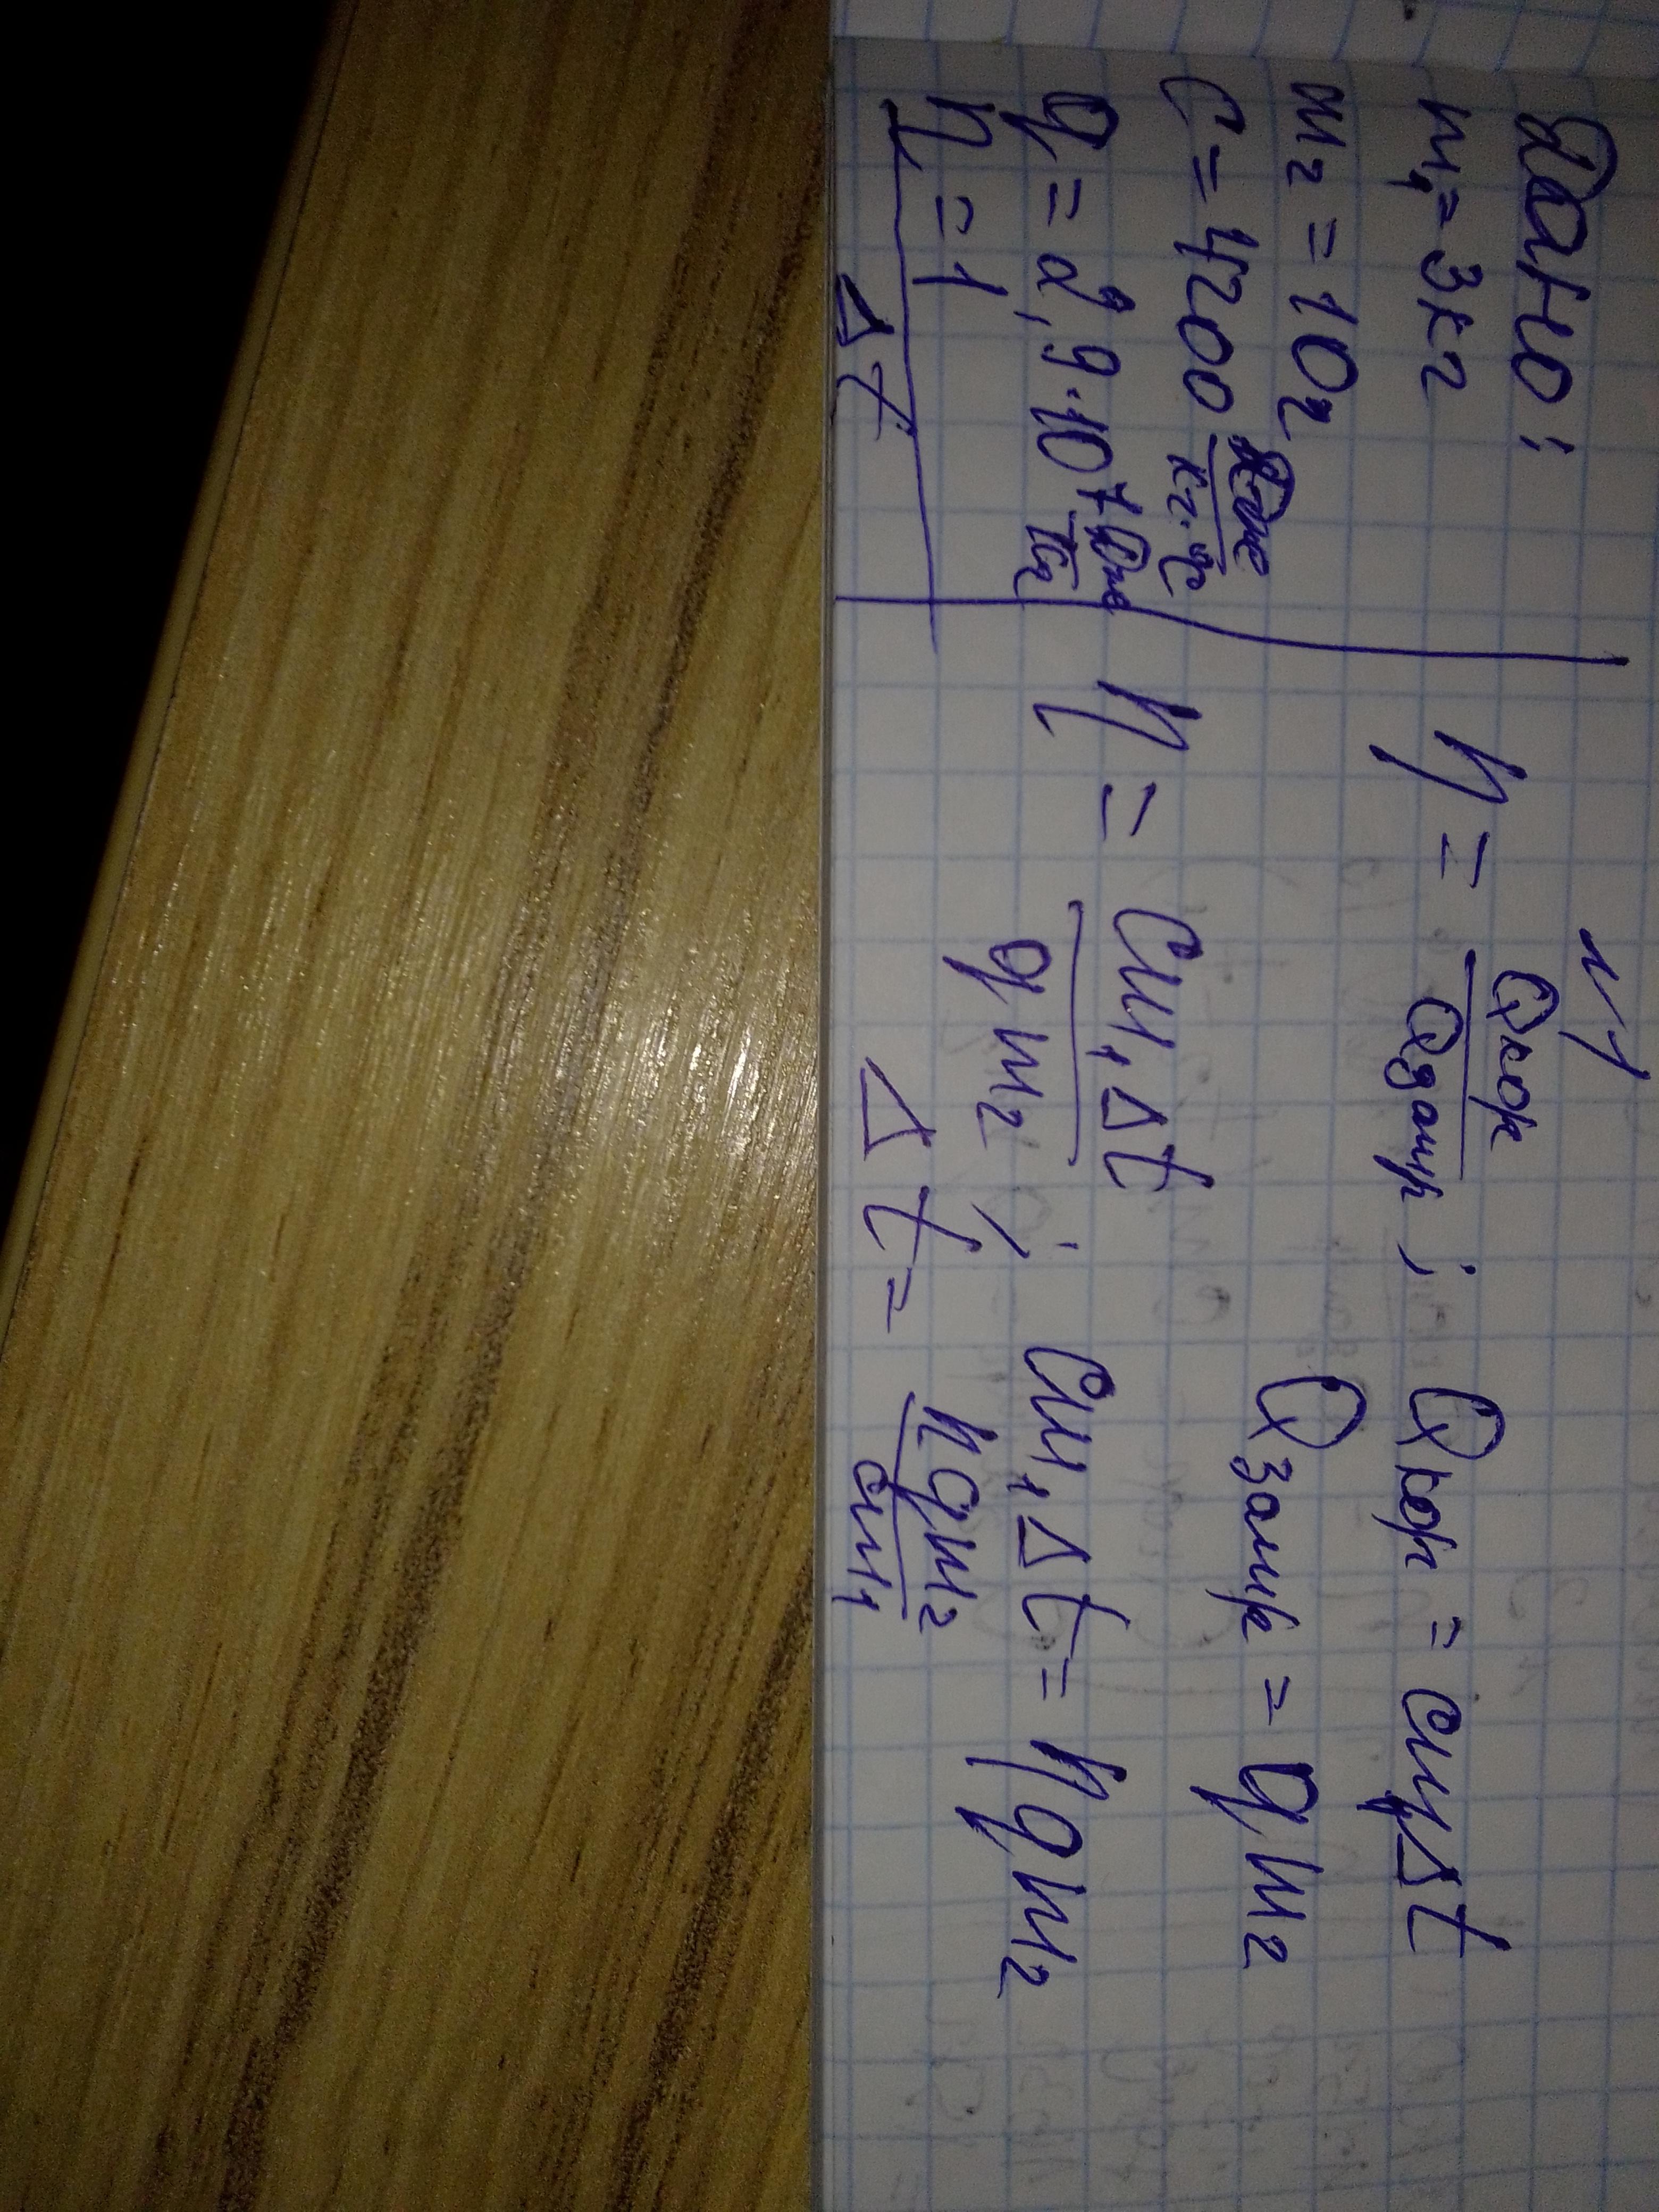 N1
Дано:
m₁ = 3кг
m₂ = 10г
C = 4200 Дж/кг·°C
q = 2,9·10⁷ Дж/кг
η = 1
Δt
η = Qкор/Qзатр ; Qкор = cm₁Δt
Qзатр = qm₂
η = cm₁Δt/qm₂ ; cm₁Δt = ηqm₂
Δt = ηqm₂/cm₁